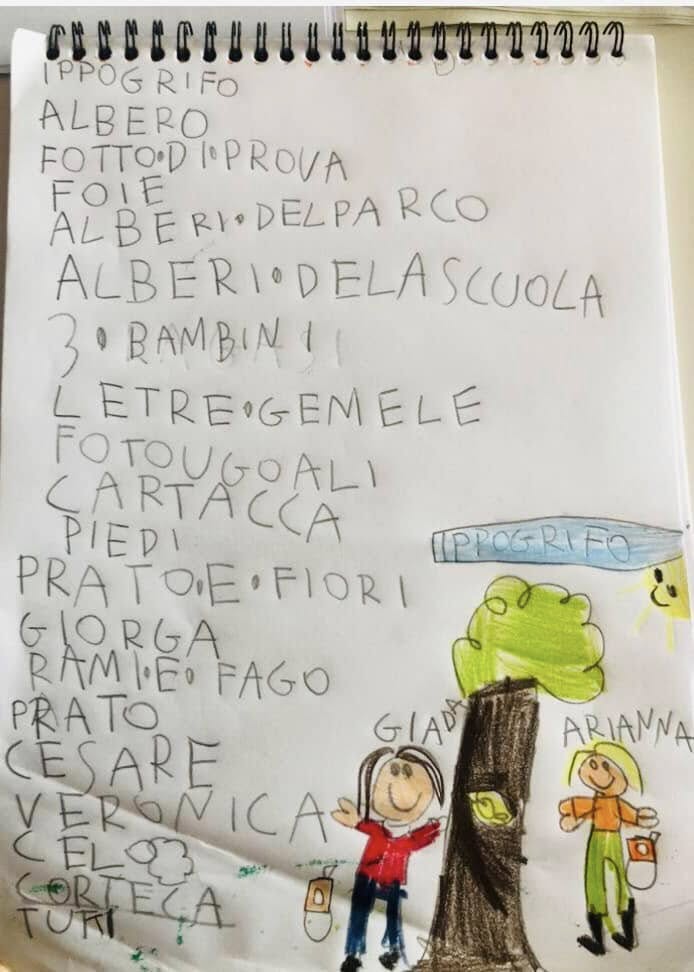 IPPOGRIFO
ALBERO
FOTTO•DI•PROVA
FOIE
ALBERI•DELPARCO
ALBERI•DELASCUOLA
3•BAMBINI
LETRE•GEMELE
FOTOUGOALI
CARTACCA
PIEDI
PRATO•E•FIORI
GIORGA
RAMI•E•FAGO
PRATO
CESARE
VERONICA
CELO
CORTECA
TUKI
IPPOGRIFO
GIADA
ARIANNA